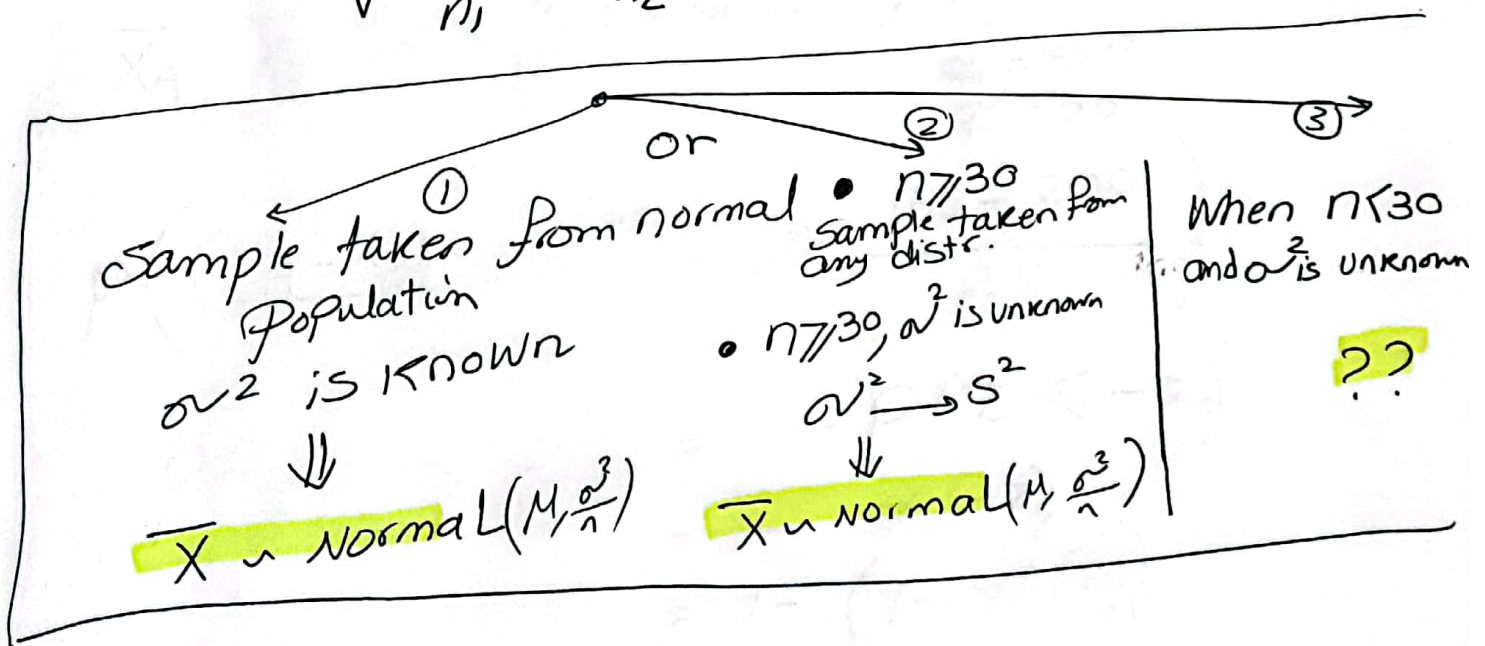 n₁
①
or
②
③
Sample taken from normal
Population
σ² is known
⇓
X̄ ~ Normal(μ, σ²/n)
• n⩾30
Sample taken from
any distr.
• n⩾30, σ² is unknown
σ² → S²
⇓
X̄ ~ Normal(μ, σ²/n)
When n<30
and σ² is unknown
??